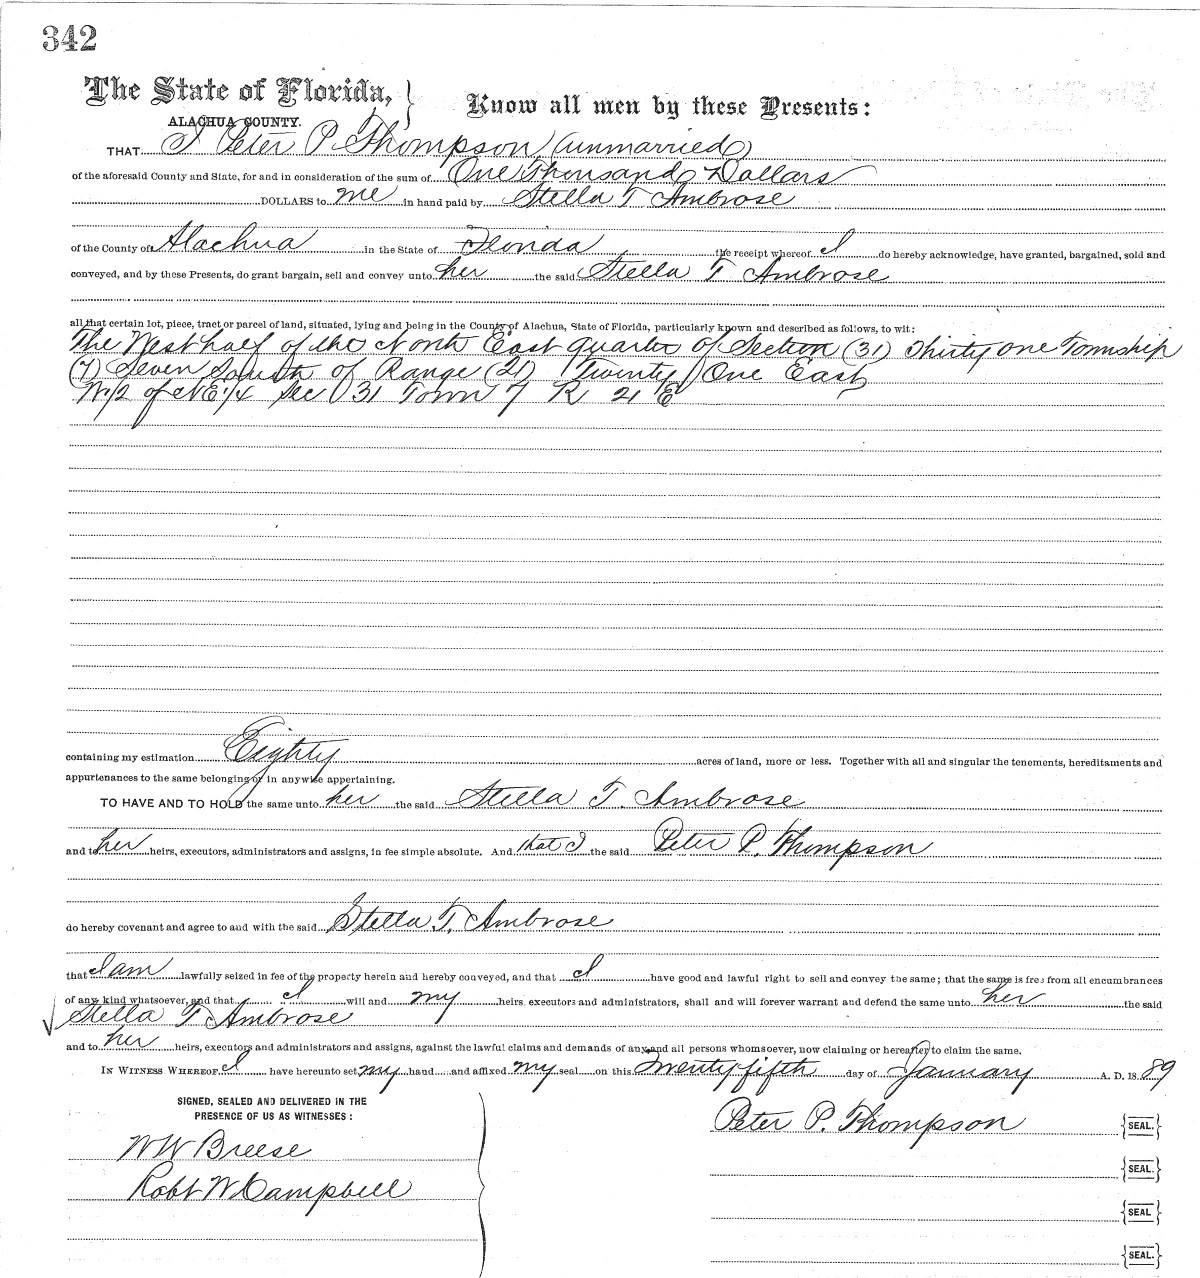 342
The State of Florida, }
ALACHUA COUNTY.
Know all men by these Presents:
THAT I Peter P Thompson (unmarried)
of the aforesaid County and State, for and in consideration of the sum of One Thousand Dollars
DOLLARS to me in hand paid by Stella T Ambrose
of the County of Alachua in the State of Florida the receipt whereof I do hereby acknowledge, have granted, bargained, sold and
conveyed, and by these Presents, do grant bargain, sell and convey unto her the said Stella T Ambrose
all that certain lot, piece, tract or parcel of land, situated, lying and being in the County of Alachua, State of Florida, particularly known and described as follows, to wit:
The West half of the North East quarter of Section (31) Thirty one Township
(7) Seven South of Range (21) Twenty One East
W.1/2 of NE.1/4 Sec 31 Town 7 R 21 E
containing my estimation Eighty acres of land, more or less. Together with all and singular the tenements, hereditaments and
appurtenances to the same belonging or in anywise appertaining.
TO HAVE AND TO HOLD the same unto her the said Stella T. Ambrose
and to her heirs, executors, administrators and assigns, in fee simple absolute. And that I the said Peter P. Thompson
do hereby covenant and agree to and with the said Stella T. Ambrose
that I am lawfully seized in fee of the property herein and hereby conveyed, and that I have good and lawful right to sell and convey the same; that the same is free from all encumbrances
of any kind whatsoever, and that I will and my heirs, executors and administrators, shall and will forever warrant and defend the same unto her the said
Stella T Ambrose
and to her heirs, executors and administrators and assigns, against the lawful claims and demands of any and all persons whomsoever, now claiming or hereafter to claim the same.
IN WITNESS WHEREOF I have hereunto set my hand and affixed my seal on this Twenty fifth day of January A. D. 18 89
SIGNED, SEALED AND DELIVERED IN THE
PRESENCE OF US AS WITNESSES:
W W Breese
Robt W Campbell
Peter P. Thompson {SEAL.}
{SEAL.}
{SEAL}
{SEAL.}